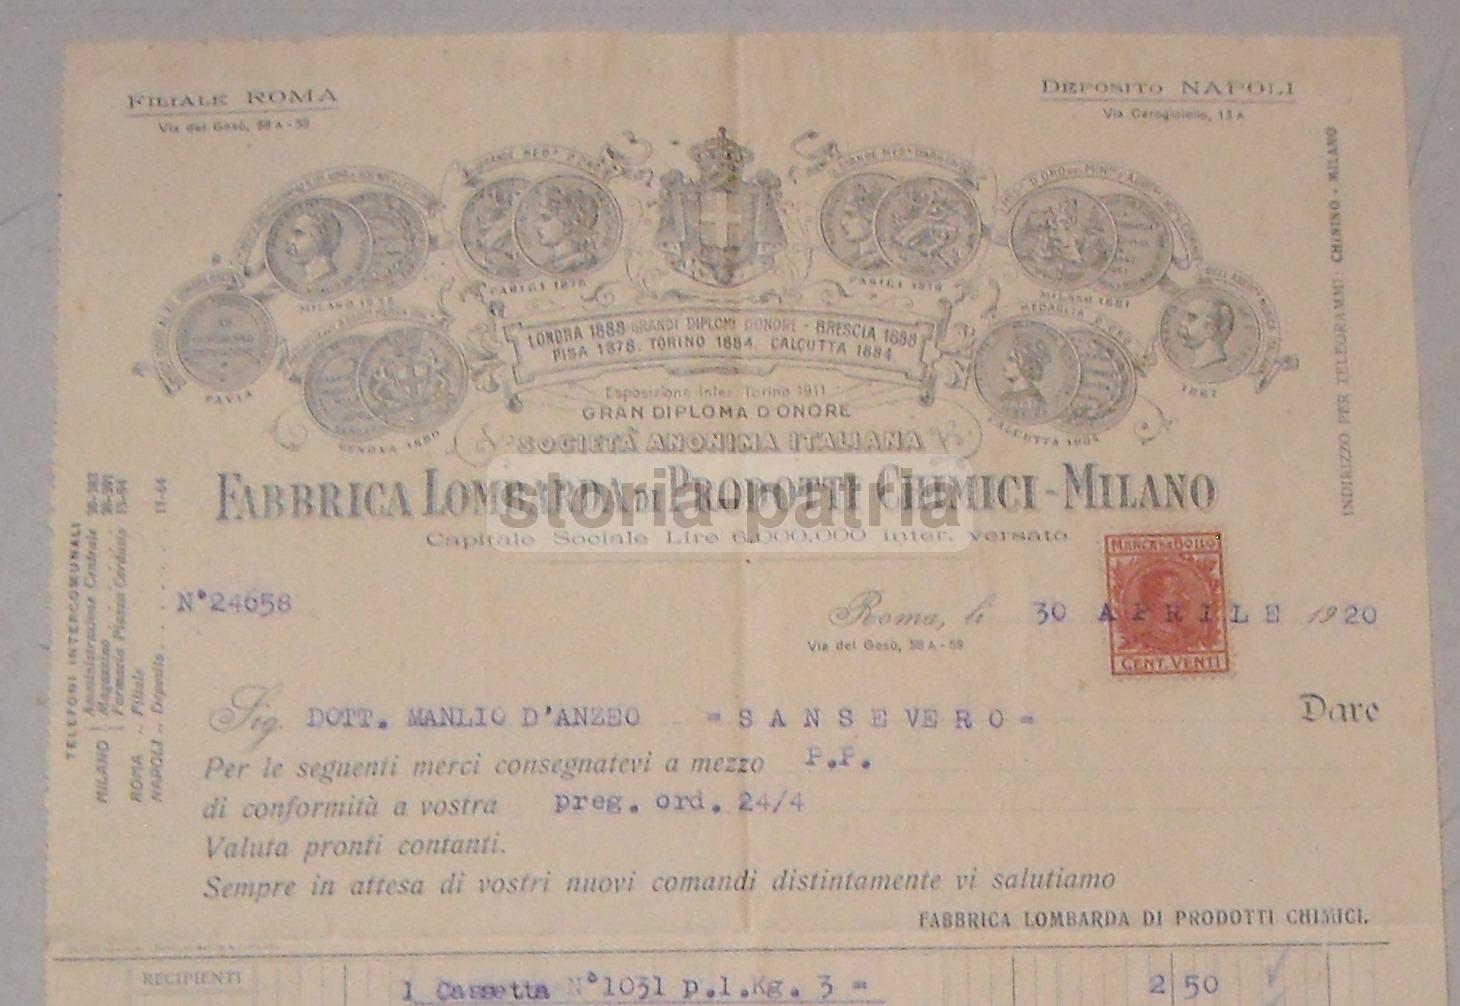 FILIALE ROMA
Via del Gesù, 58 A - 59
DEPOSITO NAPOLI
Via Carogioiello, 13 A
INDIRIZZO PER TELEGRAMMI: CHININO - MILANO
GRANDE MED. D'ORO
GRANDE MED. D'ARGENTO
MILANO 1878
PARIGI 1878
PARIGI 1878
MILANO 1881
PAVIA
GENOVA 1880
MEDAGLIA D'ORO
CALCUTTA 1884
1887
LONDRA 1888 - GRANDI DIPLOMI D'ONORE - BRESCIA 1888
PISA 1878. TORINO 1884. CALCUTTA 1884.
Esposizione Inter. Torino 1911
GRAN DIPLOMA D'ONORE
SOCIETÀ ANONIMA ITALIANA
FABBRICA LOMBARDA DI PRODOTTI CHIMICI - MILANO
storia-patria
Capitale Sociale Lire 6.000.000 inter. versato
MARCA DA BOLLO
CENT. VENTI
TELEFONI INTERCOMUNALI
MILANO Amministrazione Centrale
Magazzino
Farmacia Piazza Cordusio 15-04
ROMA .. Filiale
NAPOLI .. Deposito 11-44
N° 24658
Roma, li 30 APRILE 1920
Via del Gesù, 58 A - 59
Sig. DOTT. MANLIO D'ANZEO = SANSEVERO = Dare
Per le seguenti merci consegnatevi a mezzo P.P.
di conformità a vostra preg. ord. 24/4
Valuta pronti contanti.
Sempre in attesa di vostri nuovi comandi distintamente vi salutiamo
FABBRICA LOMBARDA DI PRODOTTI CHIMICI.
RECIPIENTI
1 Cassetta N° 1031 p.l.Kg. 3 = 2 50